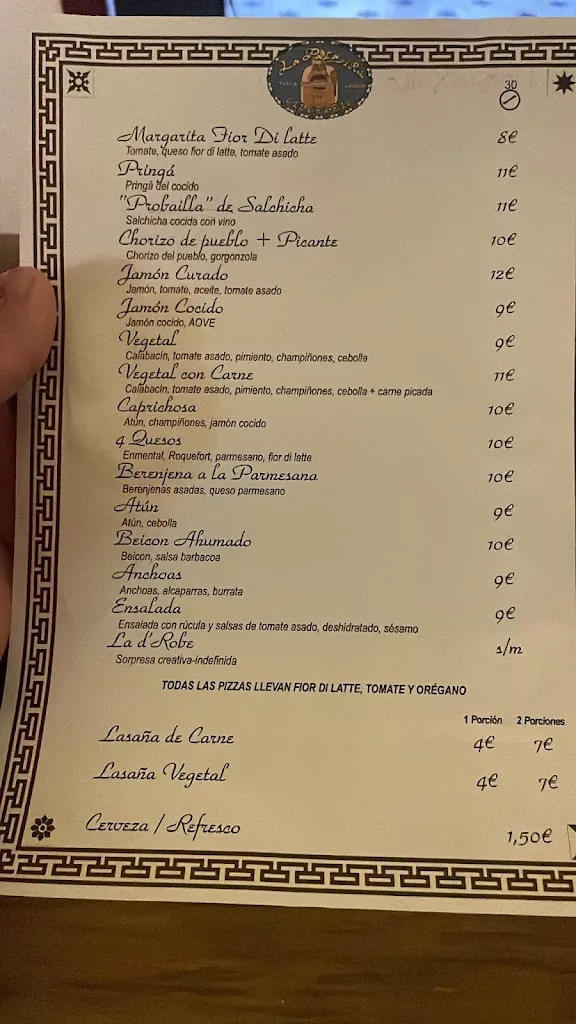 30
Margarita Fior Di Latte 8€
Tomate, queso fior di latte, tomate asado
Pringá 11€
Pringá del cocido
"Probailla" de Salchicha 11€
Salchicha cocida con vino
Chorizo de pueblo + Picante 10€
Chorizo del pueblo, gorgonzola
Jamón Curado 12€
Jamón, tomate, aceite, tomate asado
Jamón Cocido 9€
Jamón cocido, AOVE
Vegetal 9€
Calabacín, tomate asado, pimiento, champiñones, cebolla
Vegetal con Carne 11€
Calabacín, tomate asado, pimiento, champiñones, cebolla + carne picada
Caprichosa 10€
Atún, champiñones, jamón cocido
4 Quesos 10€
Enmental, Roquefort, parmesano, fior di latte
Berenjena a la Parmesana 10€
Berenjenas asadas, queso parmesano
Atún 9€
Atún, cebolla
Beicon Ahumado 10€
Beicon, salsa barbacoa
Anchoas 9€
Anchoas, alcaparras, burrata
Ensalada 9€
Ensalada con rúcula y salsas de tomate asado, deshidratado, sésamo
La d'Robe s/m
Sorpresa creativa-indefinida
TODAS LAS PIZZAS LLEVAN FIOR DI LATTE, TOMATE Y ORÉGANO
1 Porción 2 Porciones
Lasaña de Carne 4€ 7€
Lasaña Vegetal 4€ 7€
Cerveza / Refresco 1,50€